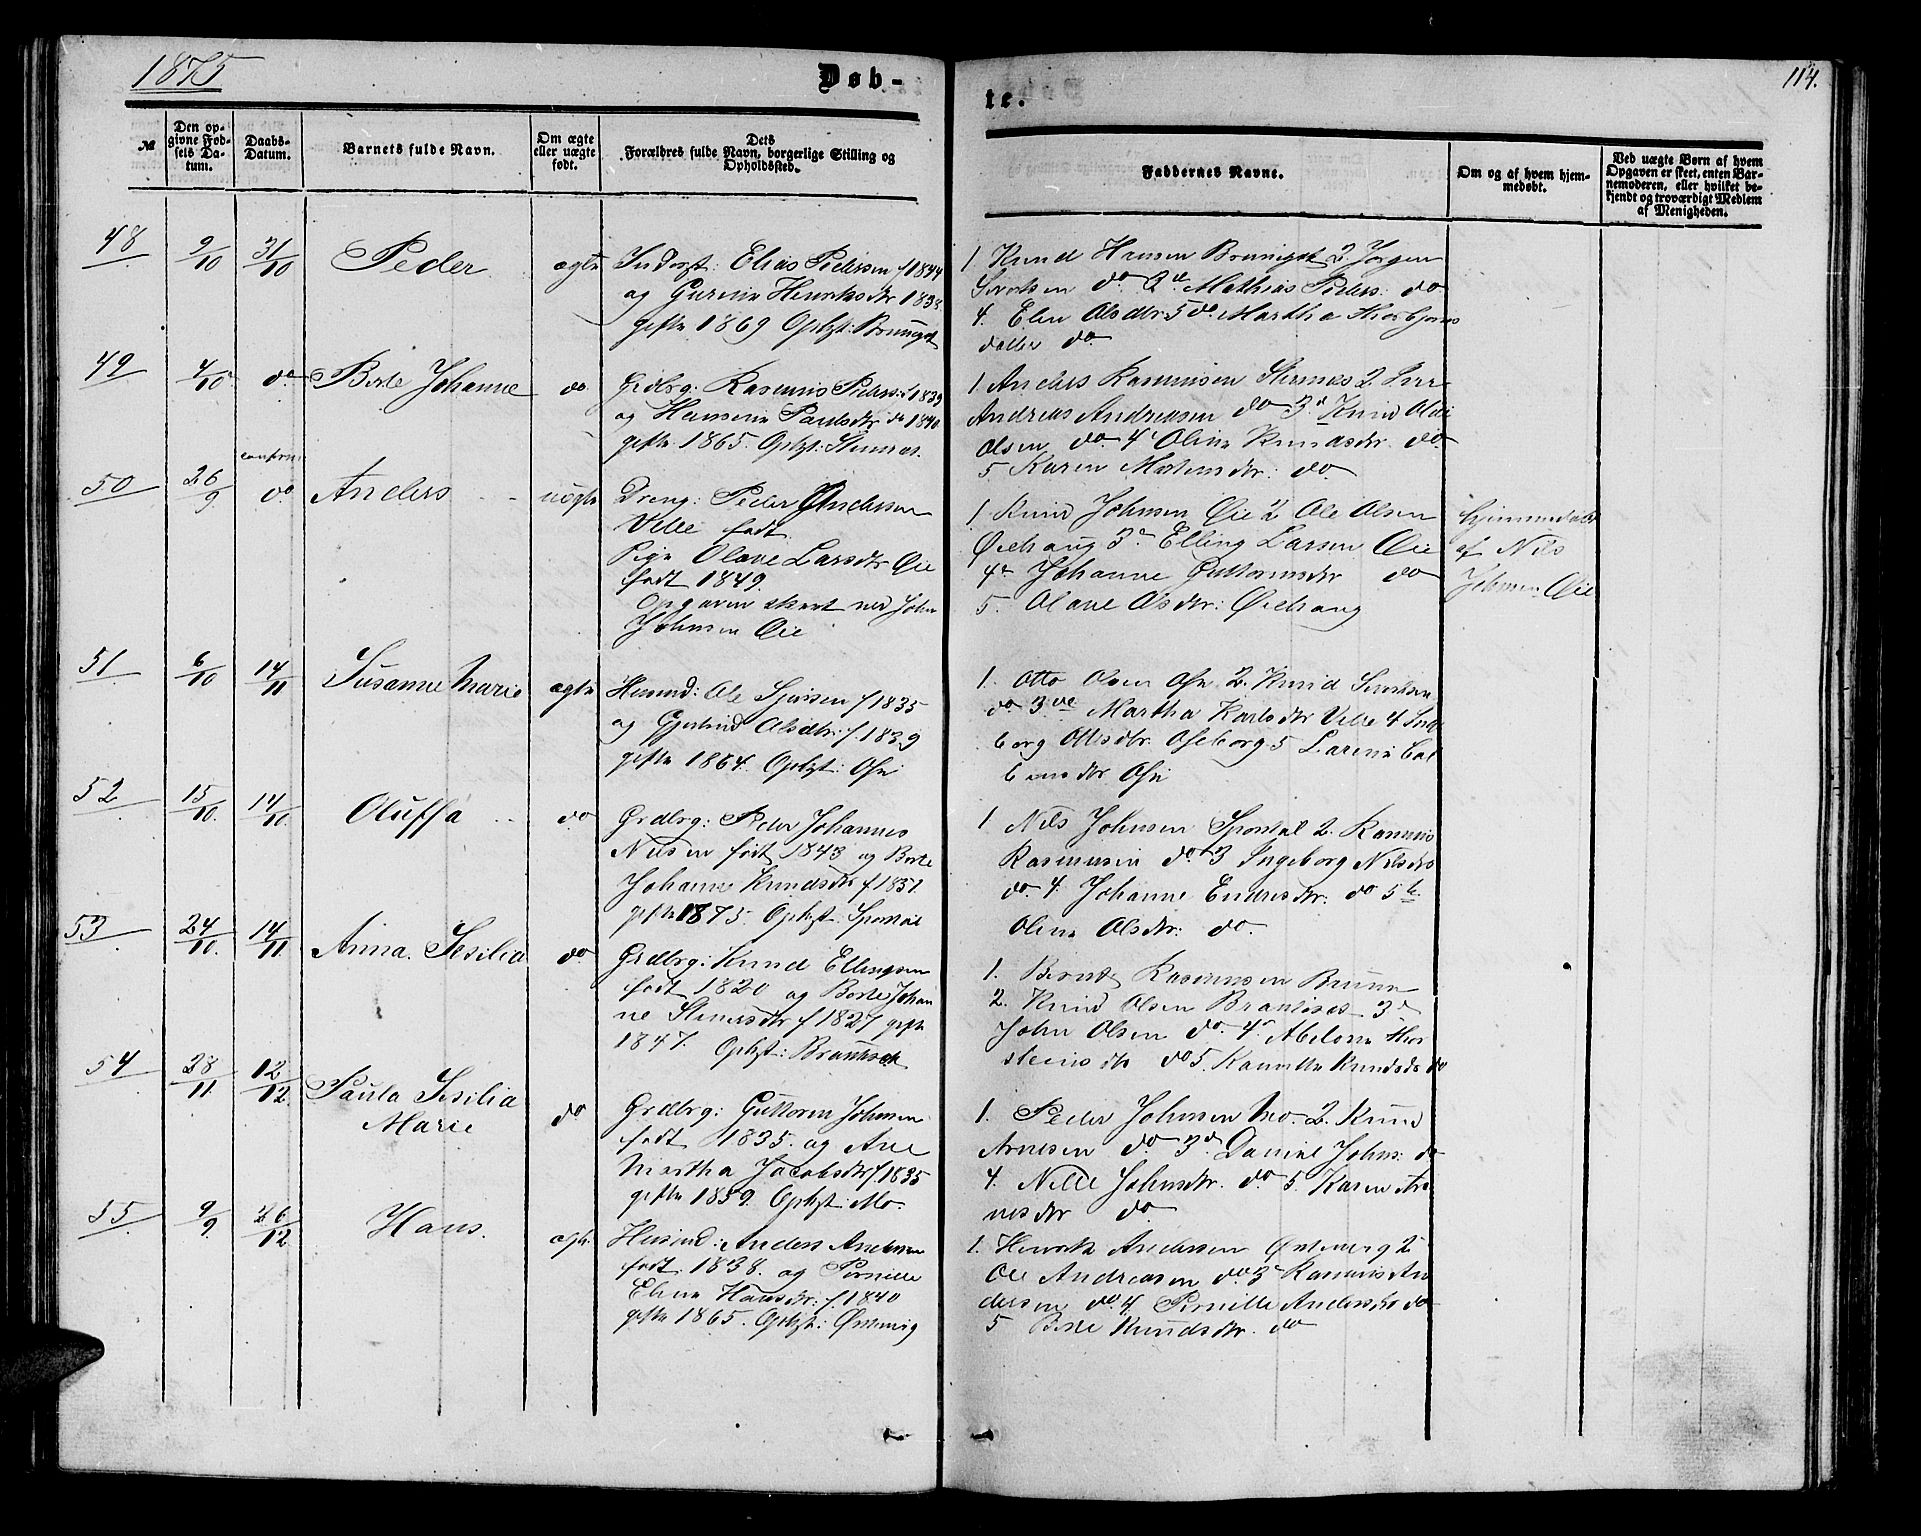 1875
Døb-
te.
114.
№
Den op-
givne Fød-
sels Da-
tum.
Daabs-
Datum.
Barnets fulde Navn.
Om ægte
eller uægte
født.
Dets
Forældres fulde Navn, borgerlige Stilling og
Opholdssted.
Faddernes Navne.
Om og af hvem hjem-
medøbt.
Ved uægte Børn af hvem
Opgaven er skeet, enten Bar-
nemoderen, eller hvilket be-
kjendt og troværdigt Medlem
af Menigheden.
48
9/10
31/10
Peder
ægte
Inderst: Elias Pedersen f 1844
og Gurine Henriksdtr 1838
gifte 1869 Ophgt:
1 Knud Hansen 2. Jørgen
do 3 Mathias Peders: do
4. Elen Olsdtr 5 do Martha Thorbjørns
datter do
49
4/10
do
Berte Johanne
do
Grdbrg: Rasmus Peders: f 1839
og Hansine Paulsdtr do 1840
gifte 1865. Ophgt:
1 Anders Rasmussen 2.
Andreas Andreasen do 3 Knud
Olsen do 4 Oline Knudsdtr do
5 Karen Mortensdtr: do
50
26/9
do
Anders
uægte
Dreng: Peder Andersen
Velle født
Pige Olave Larsdtr Øie
født 1849.
Opgaven skeet ved John
Johnsen Øie
1 Knud Johnsen Øie 2 Ole Olsen
Øiehaug 3 Elling Larsen Øie
4 Johanne Guttormsdtr do
5. Olave Olsdtr: Øiehaug
hjemmedøbt
af Nils
Johnsen Øie
51
6/10
14/11
Susanne Marie
ægte
Husmd: Ole f 1835
og Gjertrud Olsdtr: f. 1839
gifte 1864. Ophgt: Ose
1. Otto Olsen Ose 2. Knud
do 3 Martha Karlsdtr Velle 4 Inge
borg Ottesdtr. Oseborg 5
Ose
52
15/10
14/10
Oluffa
do
Grdbrg: Peder Johannes
Nilsen født 1843 og Berte
Johanne Knudsdtr f 1851
gifte 1875. Ophgt:
1 Nils Johnsen 2. Rasmus
Rasmussen do 3 Ingeborg Nilsdtr
do 4. Johanne Endresdtr: do 5
Oline Olsdtr: do.
53
24/10
14/11
Anna Sesilia
do
Grdbrg: Knud Ellingsen
født 1820 og Berte Johan
ne Steinersdtr f 1827 gifte
1847. Ophgt:
1. Rasmussen
2. Knud Olsen 3
John Olsen do 4 Abelone Thor
steinsdtr do 5. Knudsdtr do
54
28/11
12/12
Paula Sesilia
Marie
do
Grdbrg: Guttorm Johnsen
født 1835. og Ane
Martha Jacobsdtr f. 1835
gifte 1859. Ophgt: Mo.
1. Peder Johnsen Mo. 2. Knud
Arnesen do 3. Daniel Johns: do
4. Nille Johnsdtr. do 5. Karen Ar
nesdtr do
55
9/9
26/12
Hans.
ægte
Husmd: Anders Andersen
født 1838. og Pernille
Eline Hansdtr: f. 1840
gifte 1865. Ophgt: Østenvig
1. Henrik Andersen Østenvig 2
Ole Andreasen do 3 Rasmus An
dersen do 4 Pernille Andersdtr do
5 Berte Knudsdtr. do